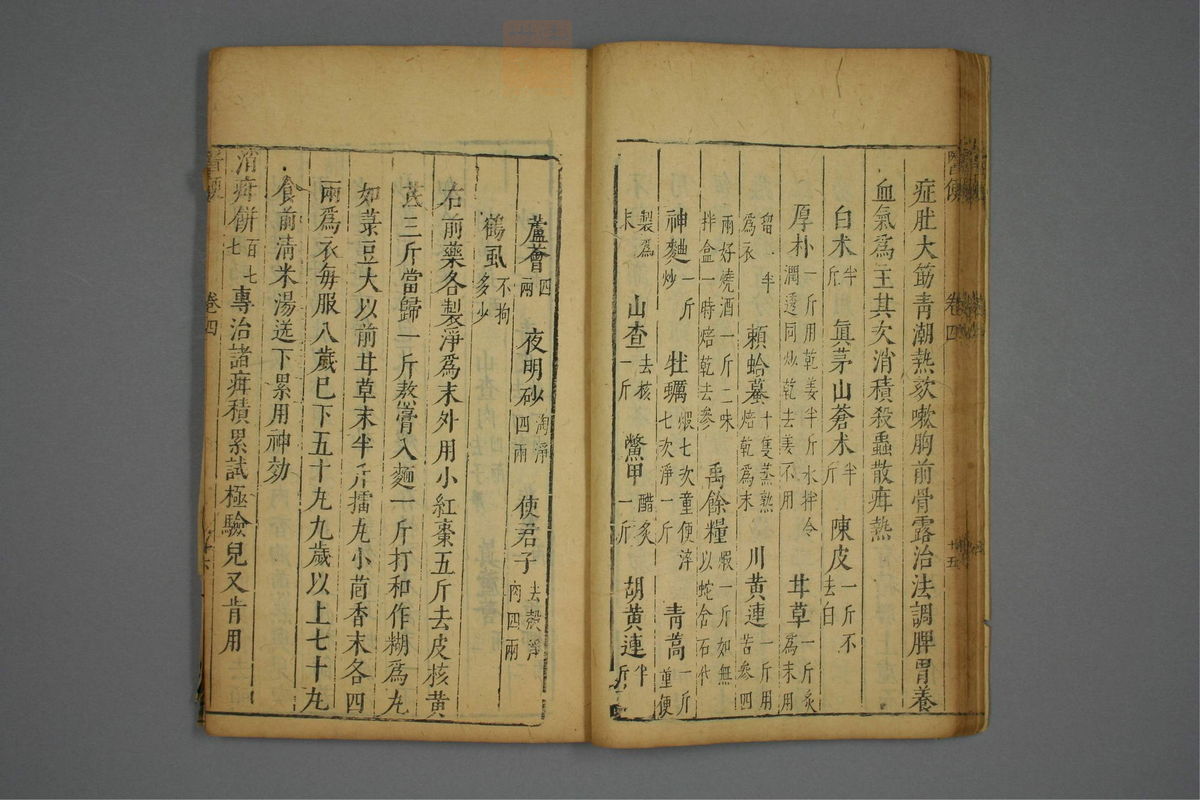 症肚大筋青潮熱欬嗽胸前骨露治法調脾胃養
血氣爲主其次消積殺蟲散疳熱
白术半斤 眞茅山蒼术半斤 陳皮一斤不去白
厚朴一斤用乾姜半斤水拌令潤透同炒乾去姜不用 甘草一斤炙爲末用
一半爲衣 癩蛤蟇十隻蒸熟焙乾爲末 川黃連一斤用苦參四
兩好燒酒一斤二味拌盒一時焙乾去參 禹餘糧煆一斤如無以蛇含石代
神麯一斤炒 牡蠣煆七次童便淬七次淨一斤 青蒿一斤童便
製爲末 山查去核一斤 鱉甲醋炙一斤 胡黃連半斤
醫便
卷四
十五
蘆薈四兩 夜明砂淘淨四兩 使君子去殼淨肉四兩
鶴虱不拘多少
右前藥各製淨爲末外用小紅棗五斤去皮核黃
芪三斤當歸一斤熬膏入麵一斤打和作糊爲丸
如菉豆大以前甘草末半斤擂丸小茴香末各四
兩爲衣每服八歲巳下五十丸九歲以上七十丸
食前清米湯送下累用神効
消疳餅百七七專治諸疳積累試極驗兒又肯用
醫便
卷四